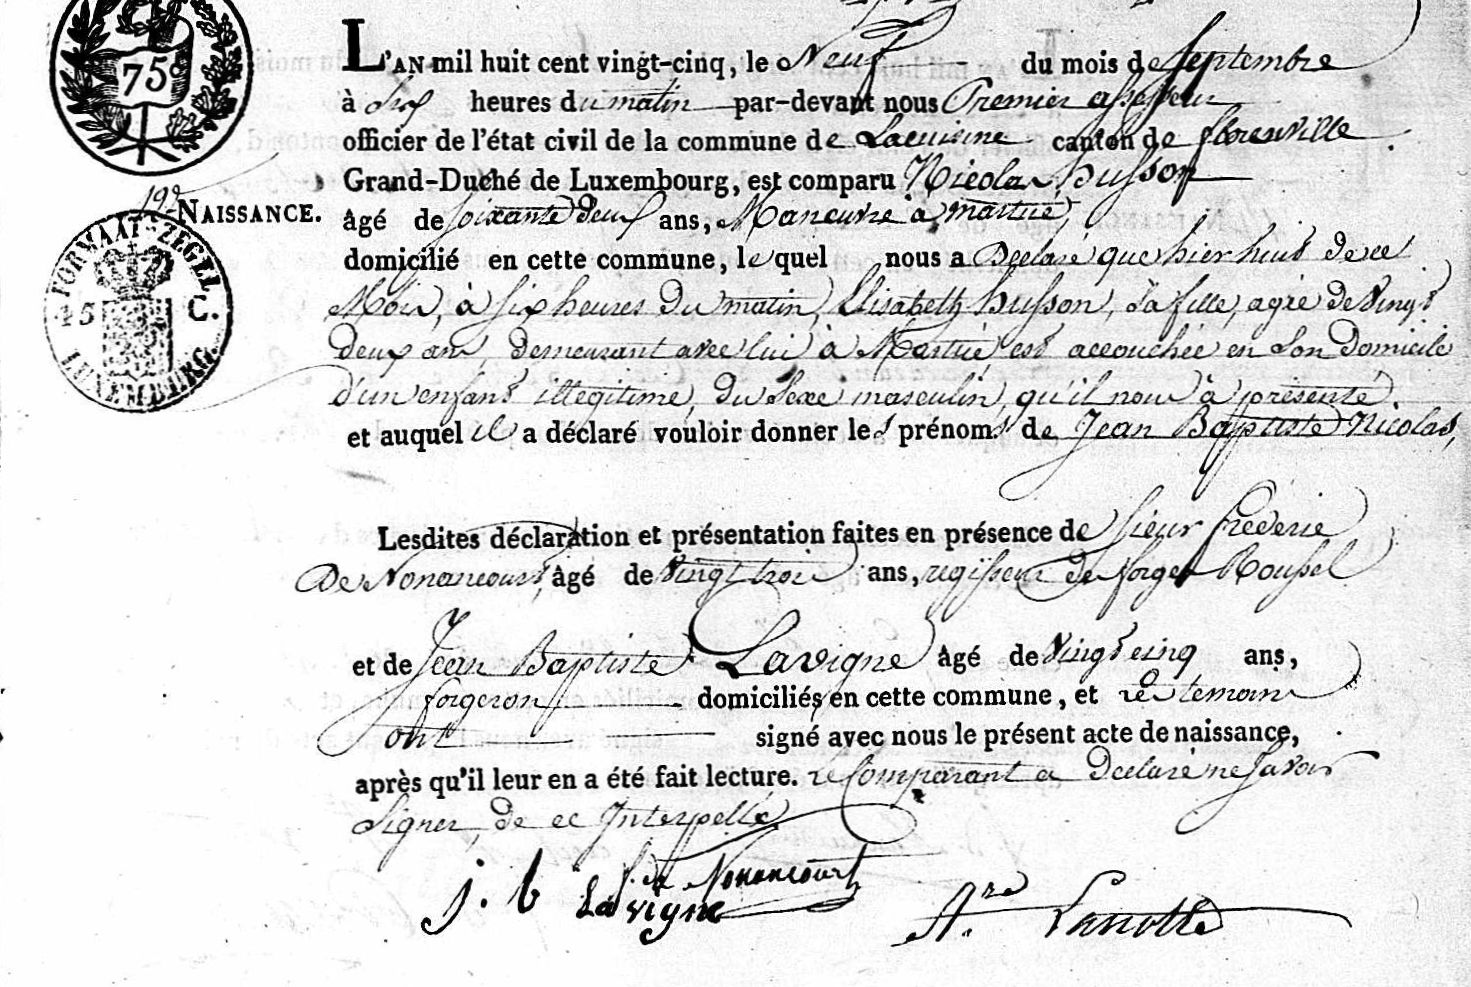 75c
L'AN mil huit cent vingt-cinq, le Neuf du mois de septembre
à Six heures du matin par-devant nous Premier assesseur
officier de l'état civil de la commune de Lacuisine canton de florenville
Grand-Duché de Luxembourg, est comparu Nicolas Husson
19e
NAISSANCE.
âgé de soixante deux ans, Maneuvre à martué
FORMAAT-ZEGEL
45 C.
LUXEMBURG.
domicilié en cette commune, lequel nous a Declaré que hier huit de ce
Mois, à six heures du matin, Elisabeth husson, sa fille, agée de vingt
deux ans, demeurant avec lui à Martué est accouchée en son Domicile
D'un enfant illegitime, du sexe masculin, qu'il nous à présenté
et auquel il a déclaré vouloir donner les prénoms de Jean Baptiste Nicolas,
Lesdites déclaration et présentation faites en présence de sieur frederic
De Nonancourt, âgé de vingt trois ans, regisseur de forges Roussel
et de Jean Baptiste Lavigne âgé de vingt cinq ans,
forgeron domiciliés en cette commune, et les temoins
ont signé avec nous le présent acte de naissance,
après qu'il leur en a été fait lecture. le Comparant a Declaré ne savoir
signer, de ce Interpellé
f. de Nonancourt
j. b Lavigne
A.re Lanotte